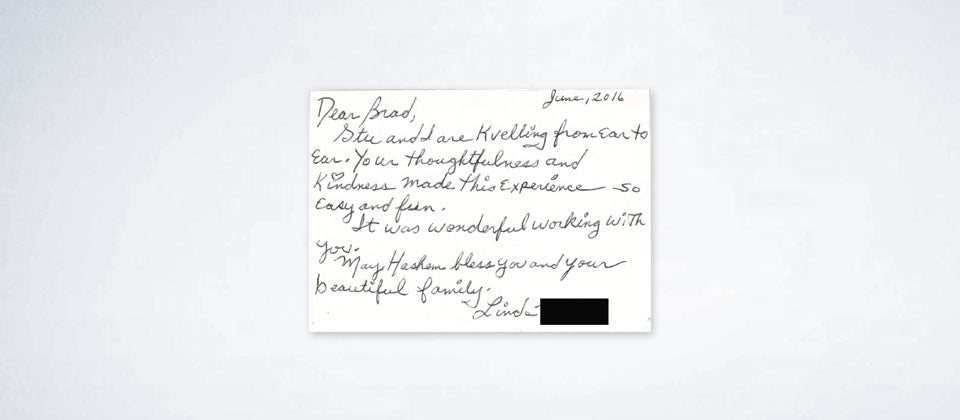 June, 2016
Dear Brad,
Stu and I are Kvelling from Ear to
Ear. Your thoughtfulness and
Kindness made this Experience so
Easy and fun.
It was wonderful working with
you.
May Hashem bless you and your
beautiful family.
Linda